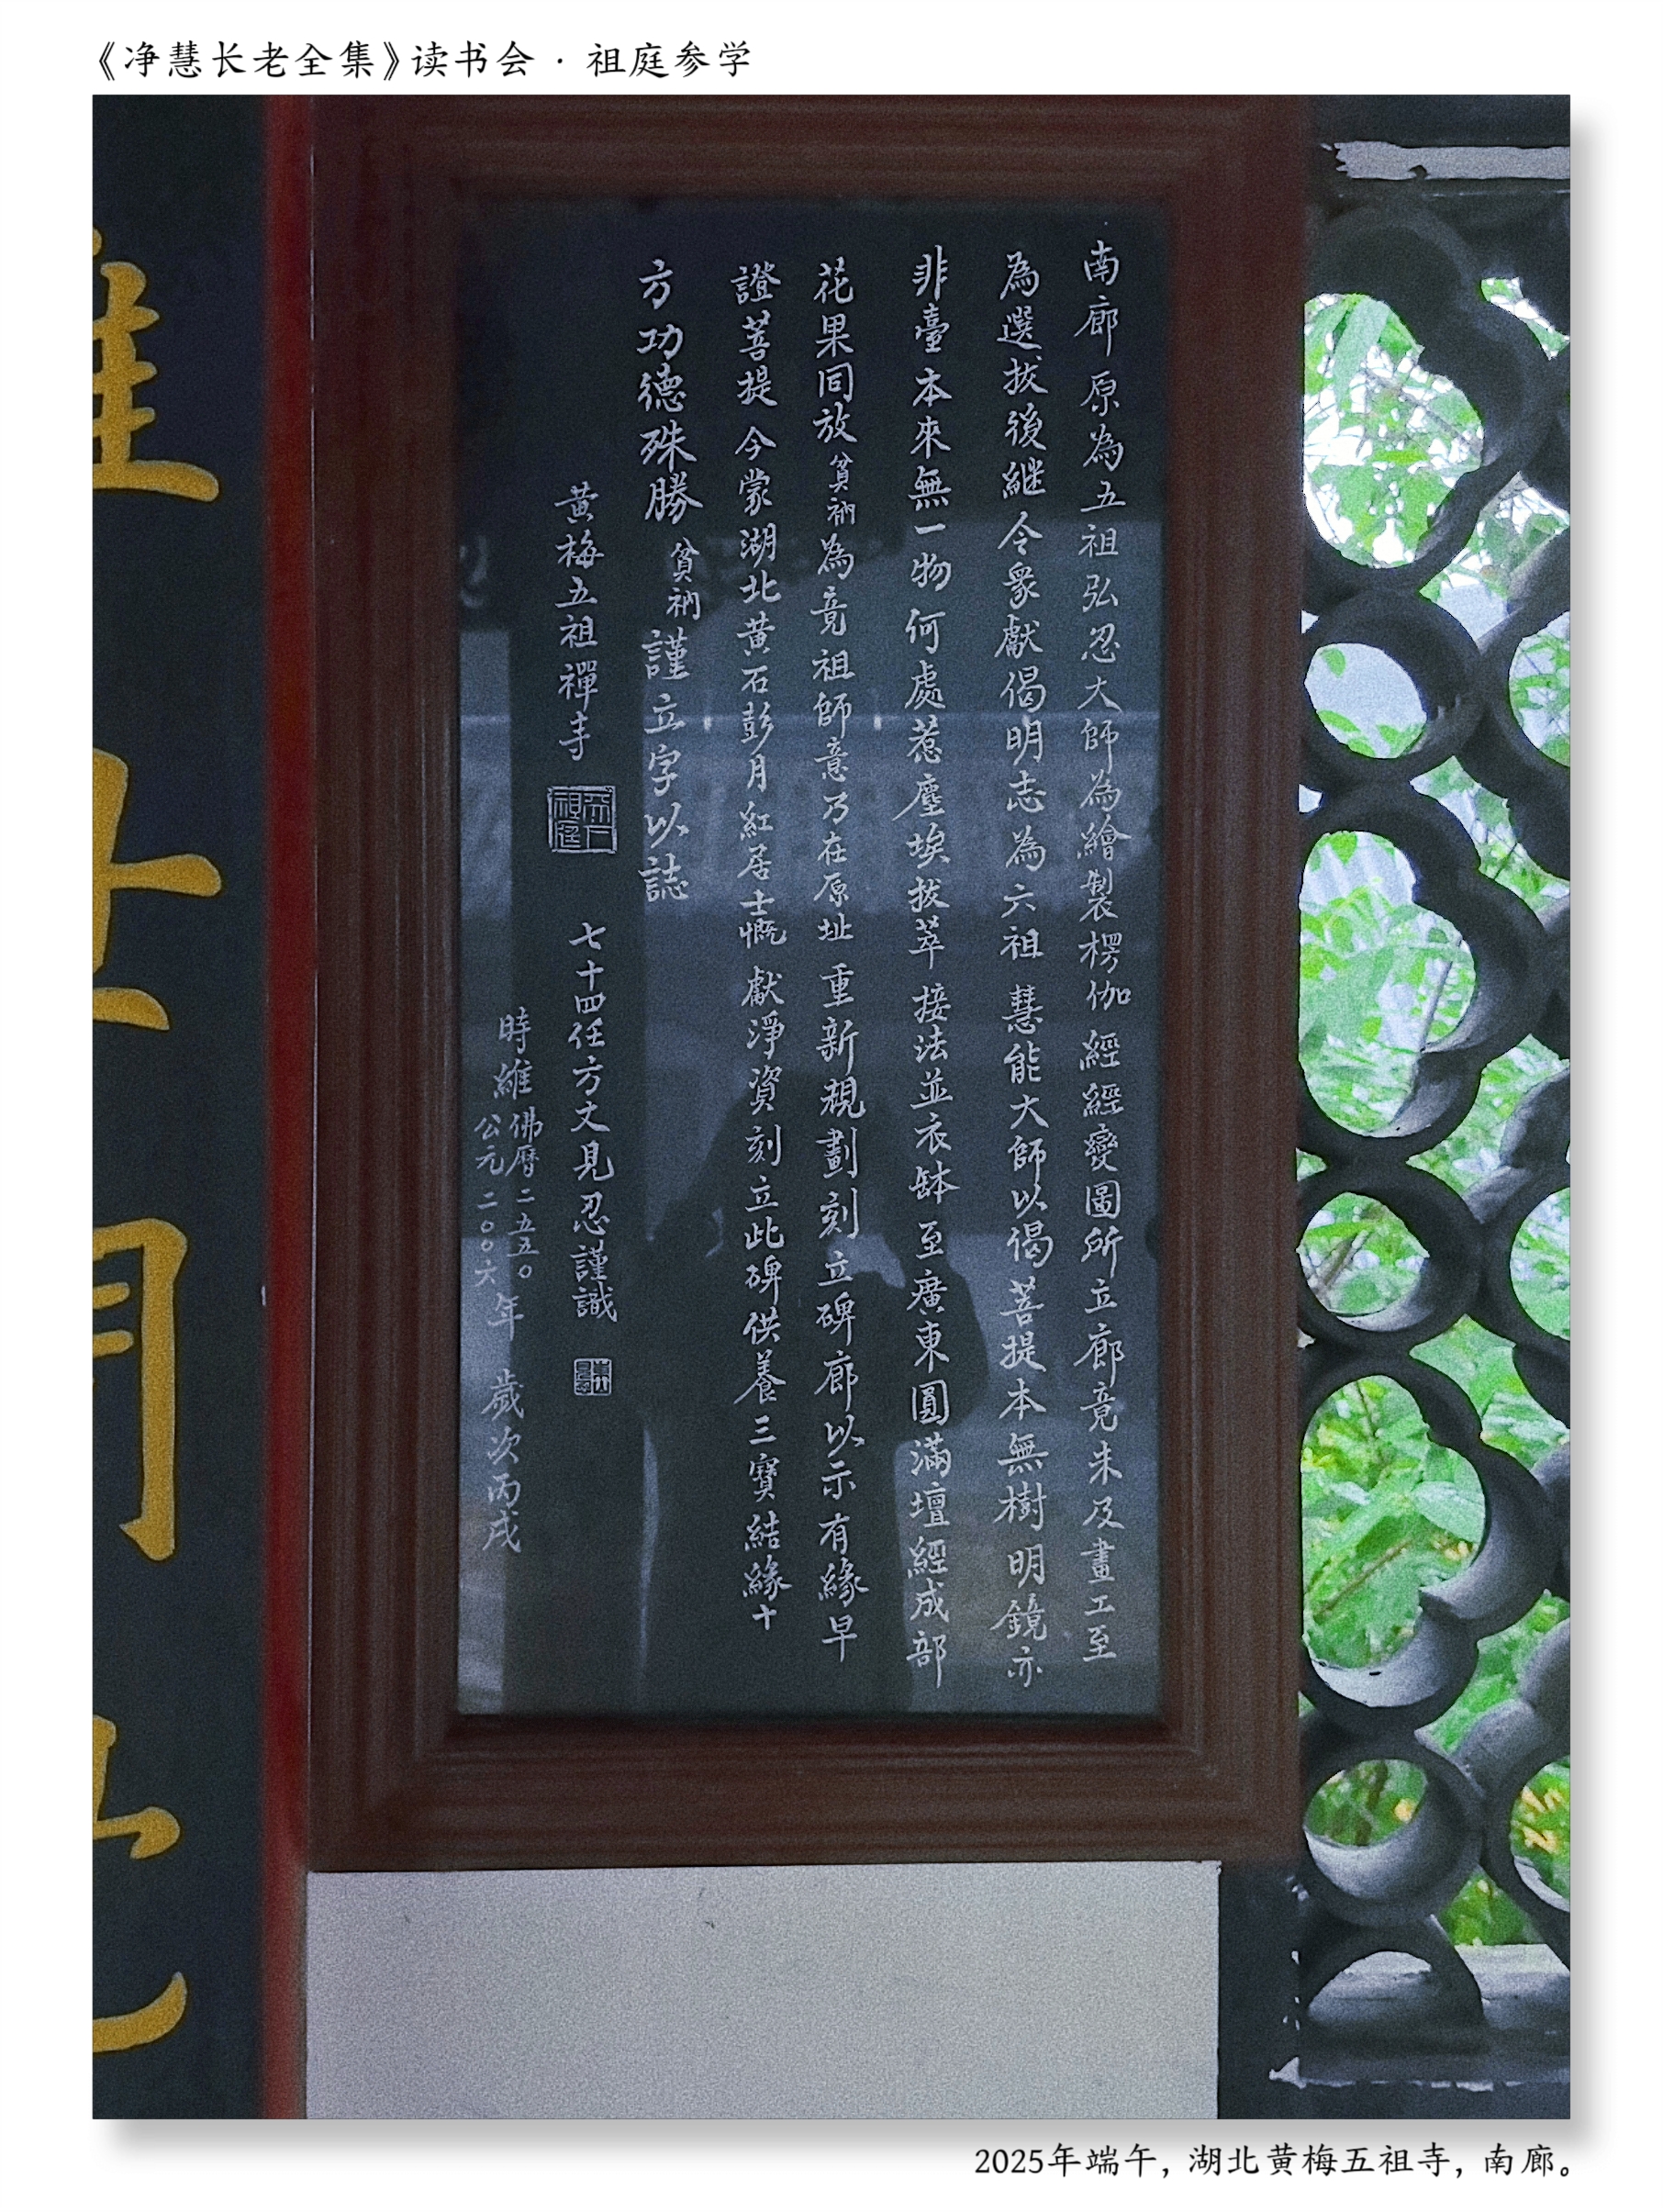 《净慧长老全集》读书会 · 祖庭参学
南廊原為五祖弘忍大師為繪製楞伽經經變圖所立廊竟未及畫工至
為選拔後継令衆獻偈明志為六祖慧能大師以偈菩提本無樹明鏡亦
非臺本來無一物何處惹塵埃拔萃接法並衣缽至廣東圓滿壇經成部
花果同放貧衲為竟祖師意乃在原址重新規劃刻立碑廊以示有緣早
證菩提今蒙湖北黄石彭月紅居士慨獻淨資刻立此碑供養三寶結緣十
方功德殊勝貧衲謹立字以誌
黄梅五祖禪寺
七十四任方丈見忍謹識
時維佛曆二五五〇
公元二〇〇六年歲次丙戌
2025年端午，湖北黄梅五祖寺，南廊。